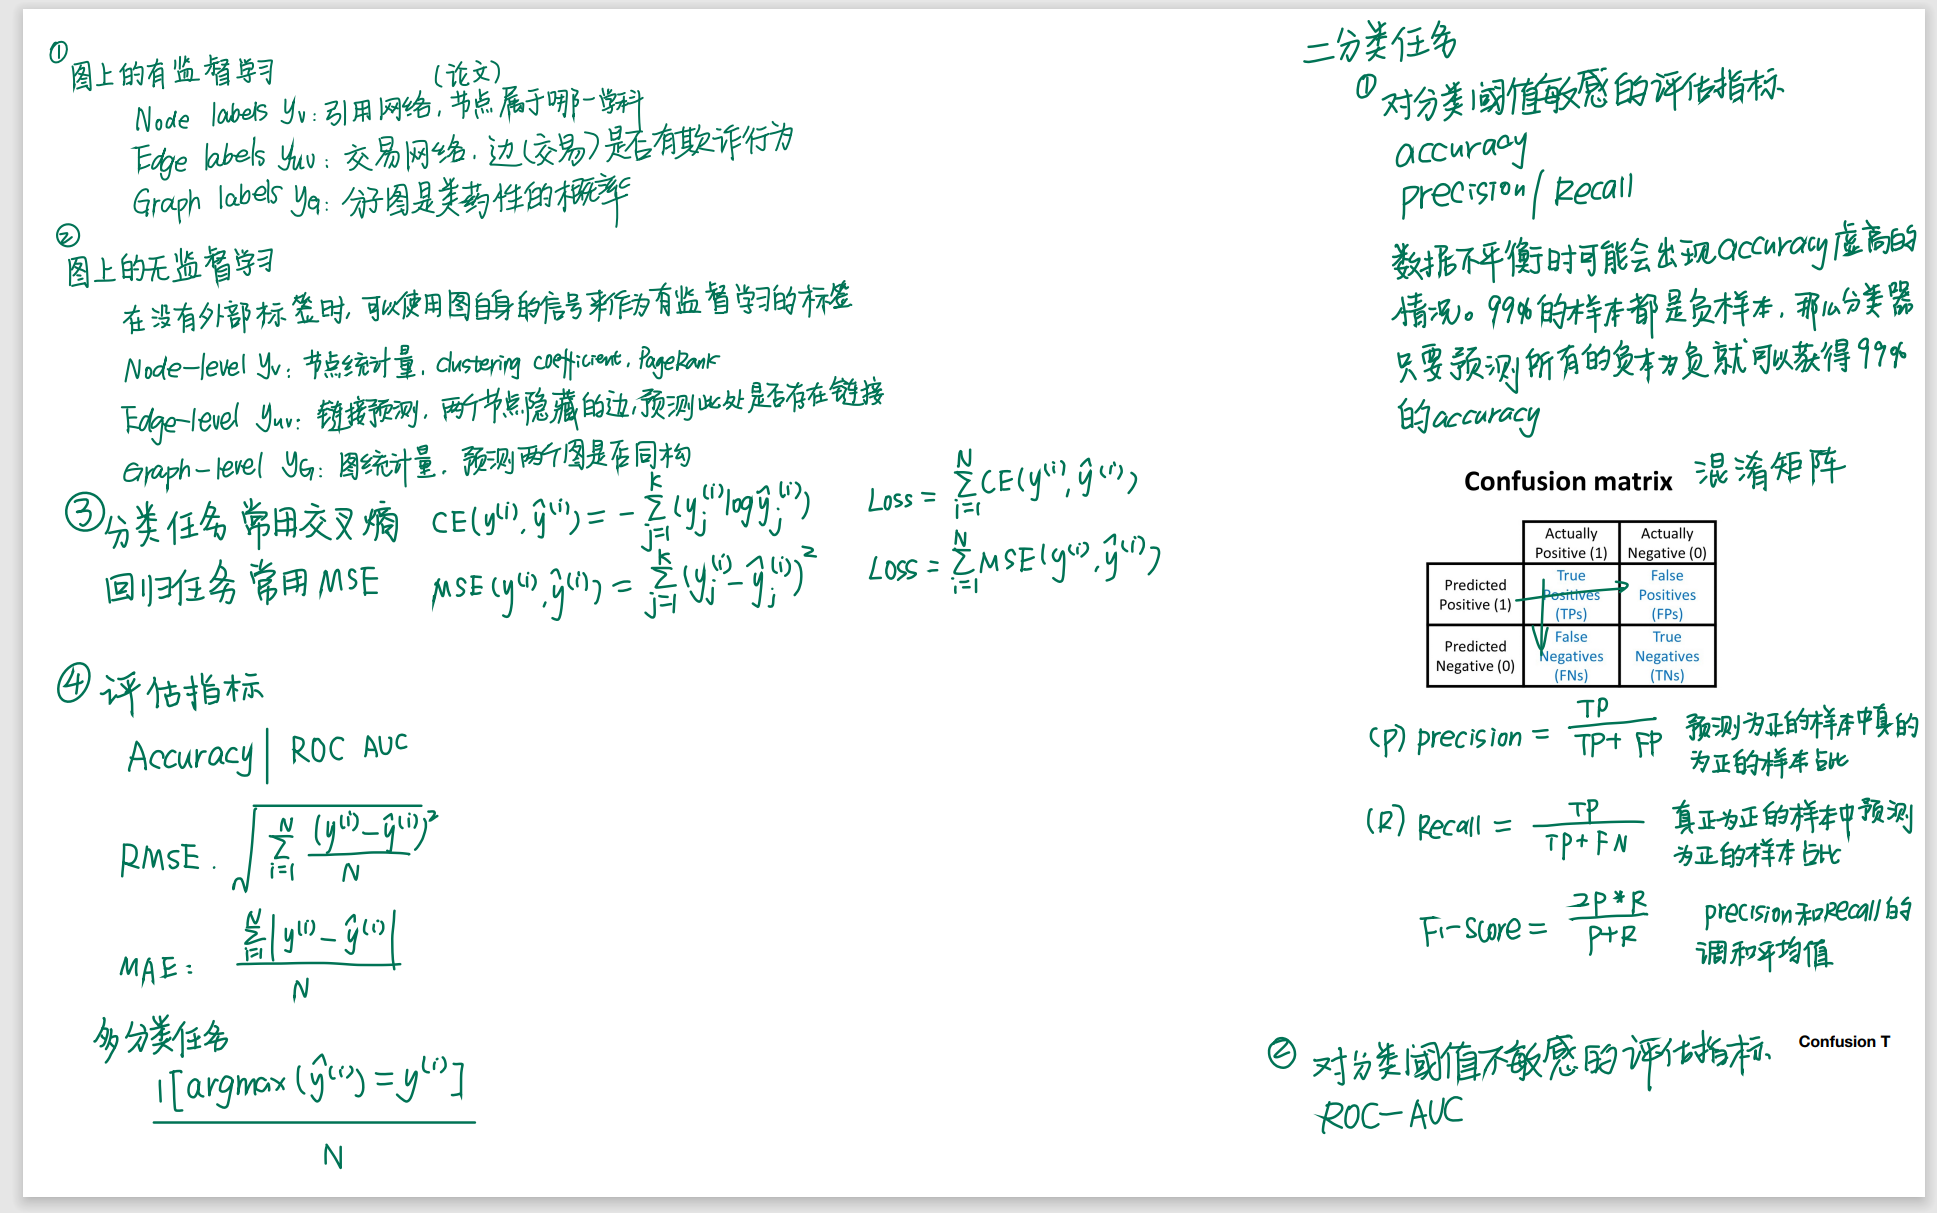 ①
图上的有监督学习 (论文)
Node labels yᵥ: 引用网络, 节点属于哪一学科
Edge labels yᵤᵥ: 交易网络. 边(交易)是否有欺诈行为
Graph labels y_G: 分子图是类药性的概率
②
图上的无监督学习
在没有外部标签时, 可以使用图自身的信号来作为有监督学习的标签
Node-level yᵥ: 节点统计量, clustering coefficient, PageRank
Edge-level yᵤᵥ: 链接预测, 两个节点隐藏的边, 预测此处是否存在链接
Graph-level y_G: 图统计量, 预测两个图是否同构
③ 分类任务 常用交叉熵 CE(y^(i), ŷ^(i)) = -∑_{j=1}^{K} (y_j^(i) log ŷ_j^(i)) Loss = ∑_{i=1}^{N} CE(y^(i), ŷ^(i))
回归任务 常用MSE MSE(y^(i), ŷ^(i)) = ∑_{j=1}^{K} (y_j^(i) - ŷ_j^(i))² Loss = ∑_{i=1}^{N} MSE(y^(i), ŷ^(i))
④ 评估指标
Accuracy | ROC AUC
RMSE. √(∑_{i=1}^{N} (y^(i) - ŷ^(i))² / N)
MAE: ∑_{i=1}^{N} |y^(i) - ŷ^(i)| / N
多分类任务
1[argmax(ŷ^(i)) = y^(i)] / N
二分类任务
① 对分类阈值敏感的评估指标
accuracy
precision / Recall
数据不平衡时可能会出现accuracy虚高的
情况。99%的样本都是负样本, 那么分类器
只要预测所有的负本为负就可以获得99%
的accuracy
Confusion matrix 混淆矩阵
Actually Positive (1) Actually Negative (0)
Predicted Positive (1) True Positives (TPs) False Positives (FPs)
Predicted Negative (0) False Negatives (FNs) True Negatives (TNs)
(P) precision = TP / (TP + FP) 预测为正的样本中真的
为正的样本占比
(R) Recall = TP / (TP + FN) 真正为正的样本中预测
为正的样本占比
F1-Score = 2P*R / (P+R) precision和Recall的
调和平均值
② 对分类阈值不敏感的评估指标 Confusion T
ROC-AUC